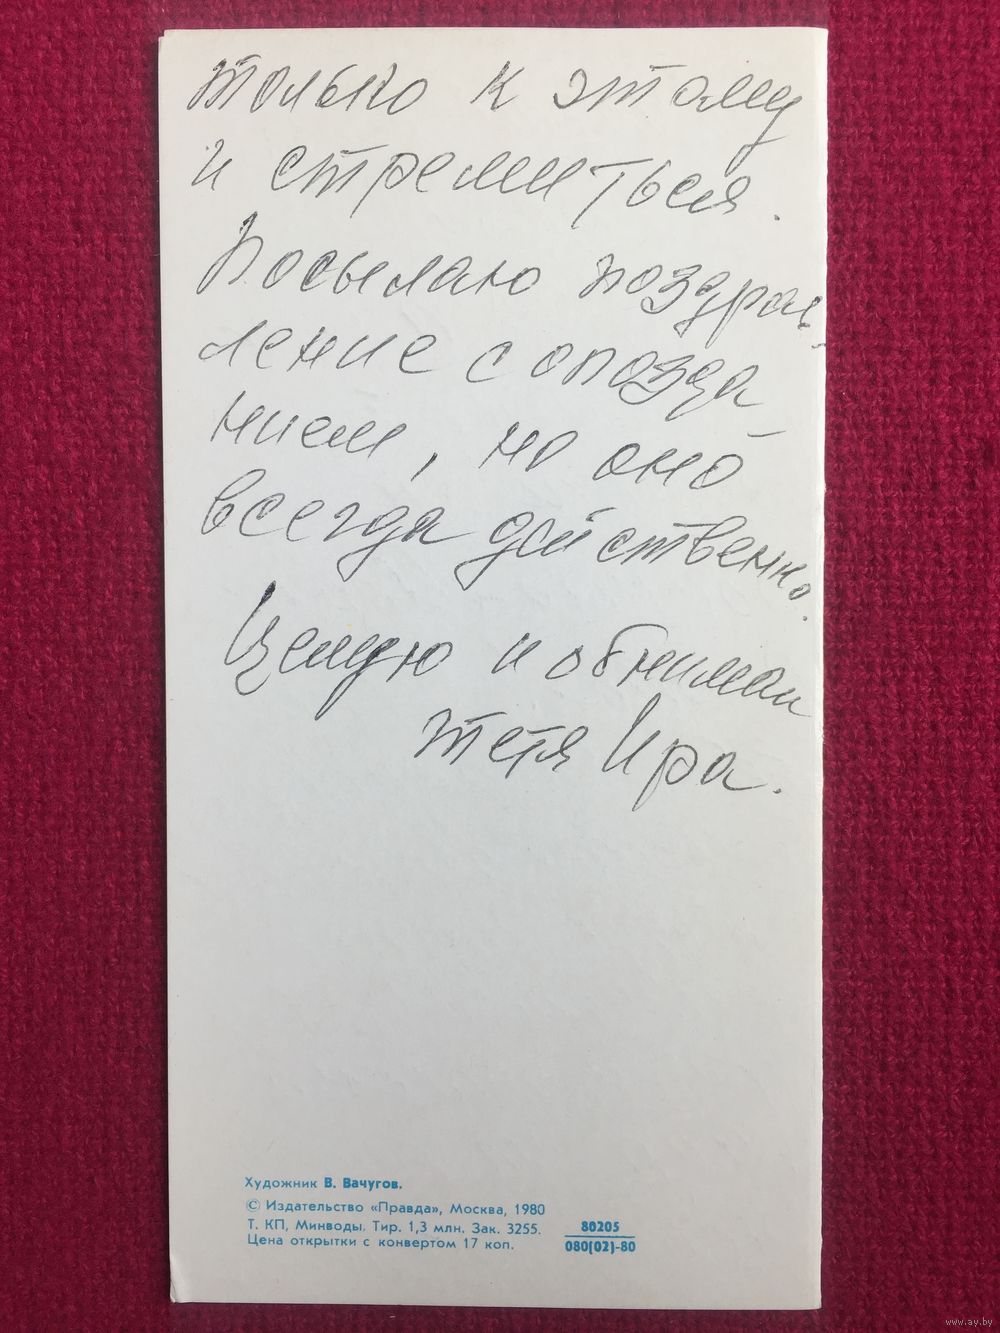 только к этому
и стремиться.
Посылаю поздрав-
ление с опозда-
нием, но оно
всегда действенно.
Целую и обнимаю
тетя Ира.
Художник В. Вачугов.
© Издательство «Правда», Москва, 1980
Т. КП, Минводы. Тир. 1,3 млн. Зак. 3255.
Цена открытки с конвертом 17 коп.
80205
080(02)-80
www.ay.by